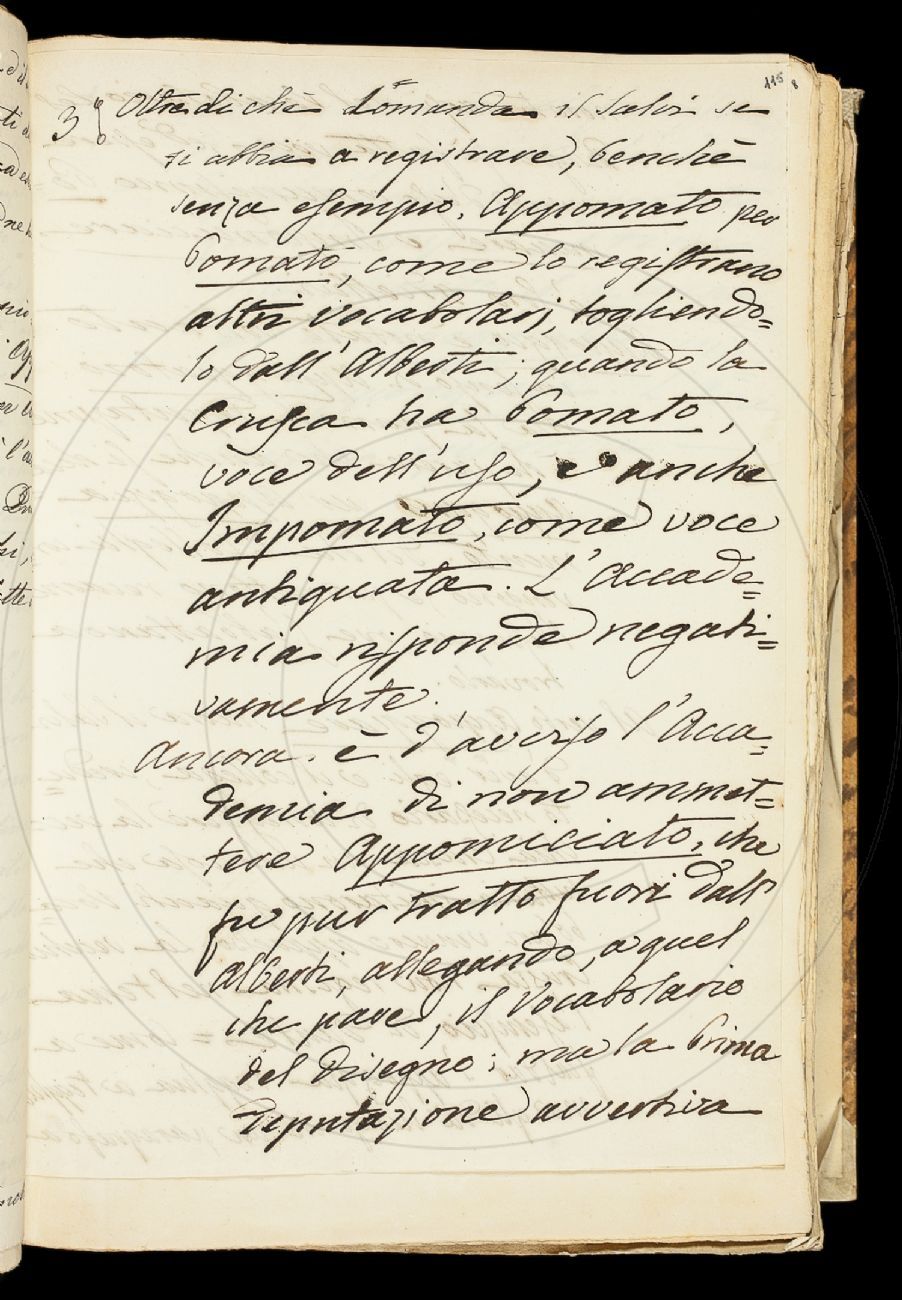 115
8
3º Oltre di che domanda il Salvi se
si abbia a registrare, benchè
senza esempio, Appomato per
Pomato, come lo registrano
altri vocabolarj, togliendo=
lo dall'Alberti; quando la
Crusca ha Pomato,
voce dell'uso, e anche
Impomato, come voce
antiquata. L'Accade=
mia risponde negati=
vamente.
Ancora è d'avviso l'Acca=
demia di non ammet=
tere Appomiciato, che
fu pur tratto fuori dall'
Alberti, allegando, a quel
che pare, il Vocabolario
del Disegno; ma la Prima
Deputazione avvertiva